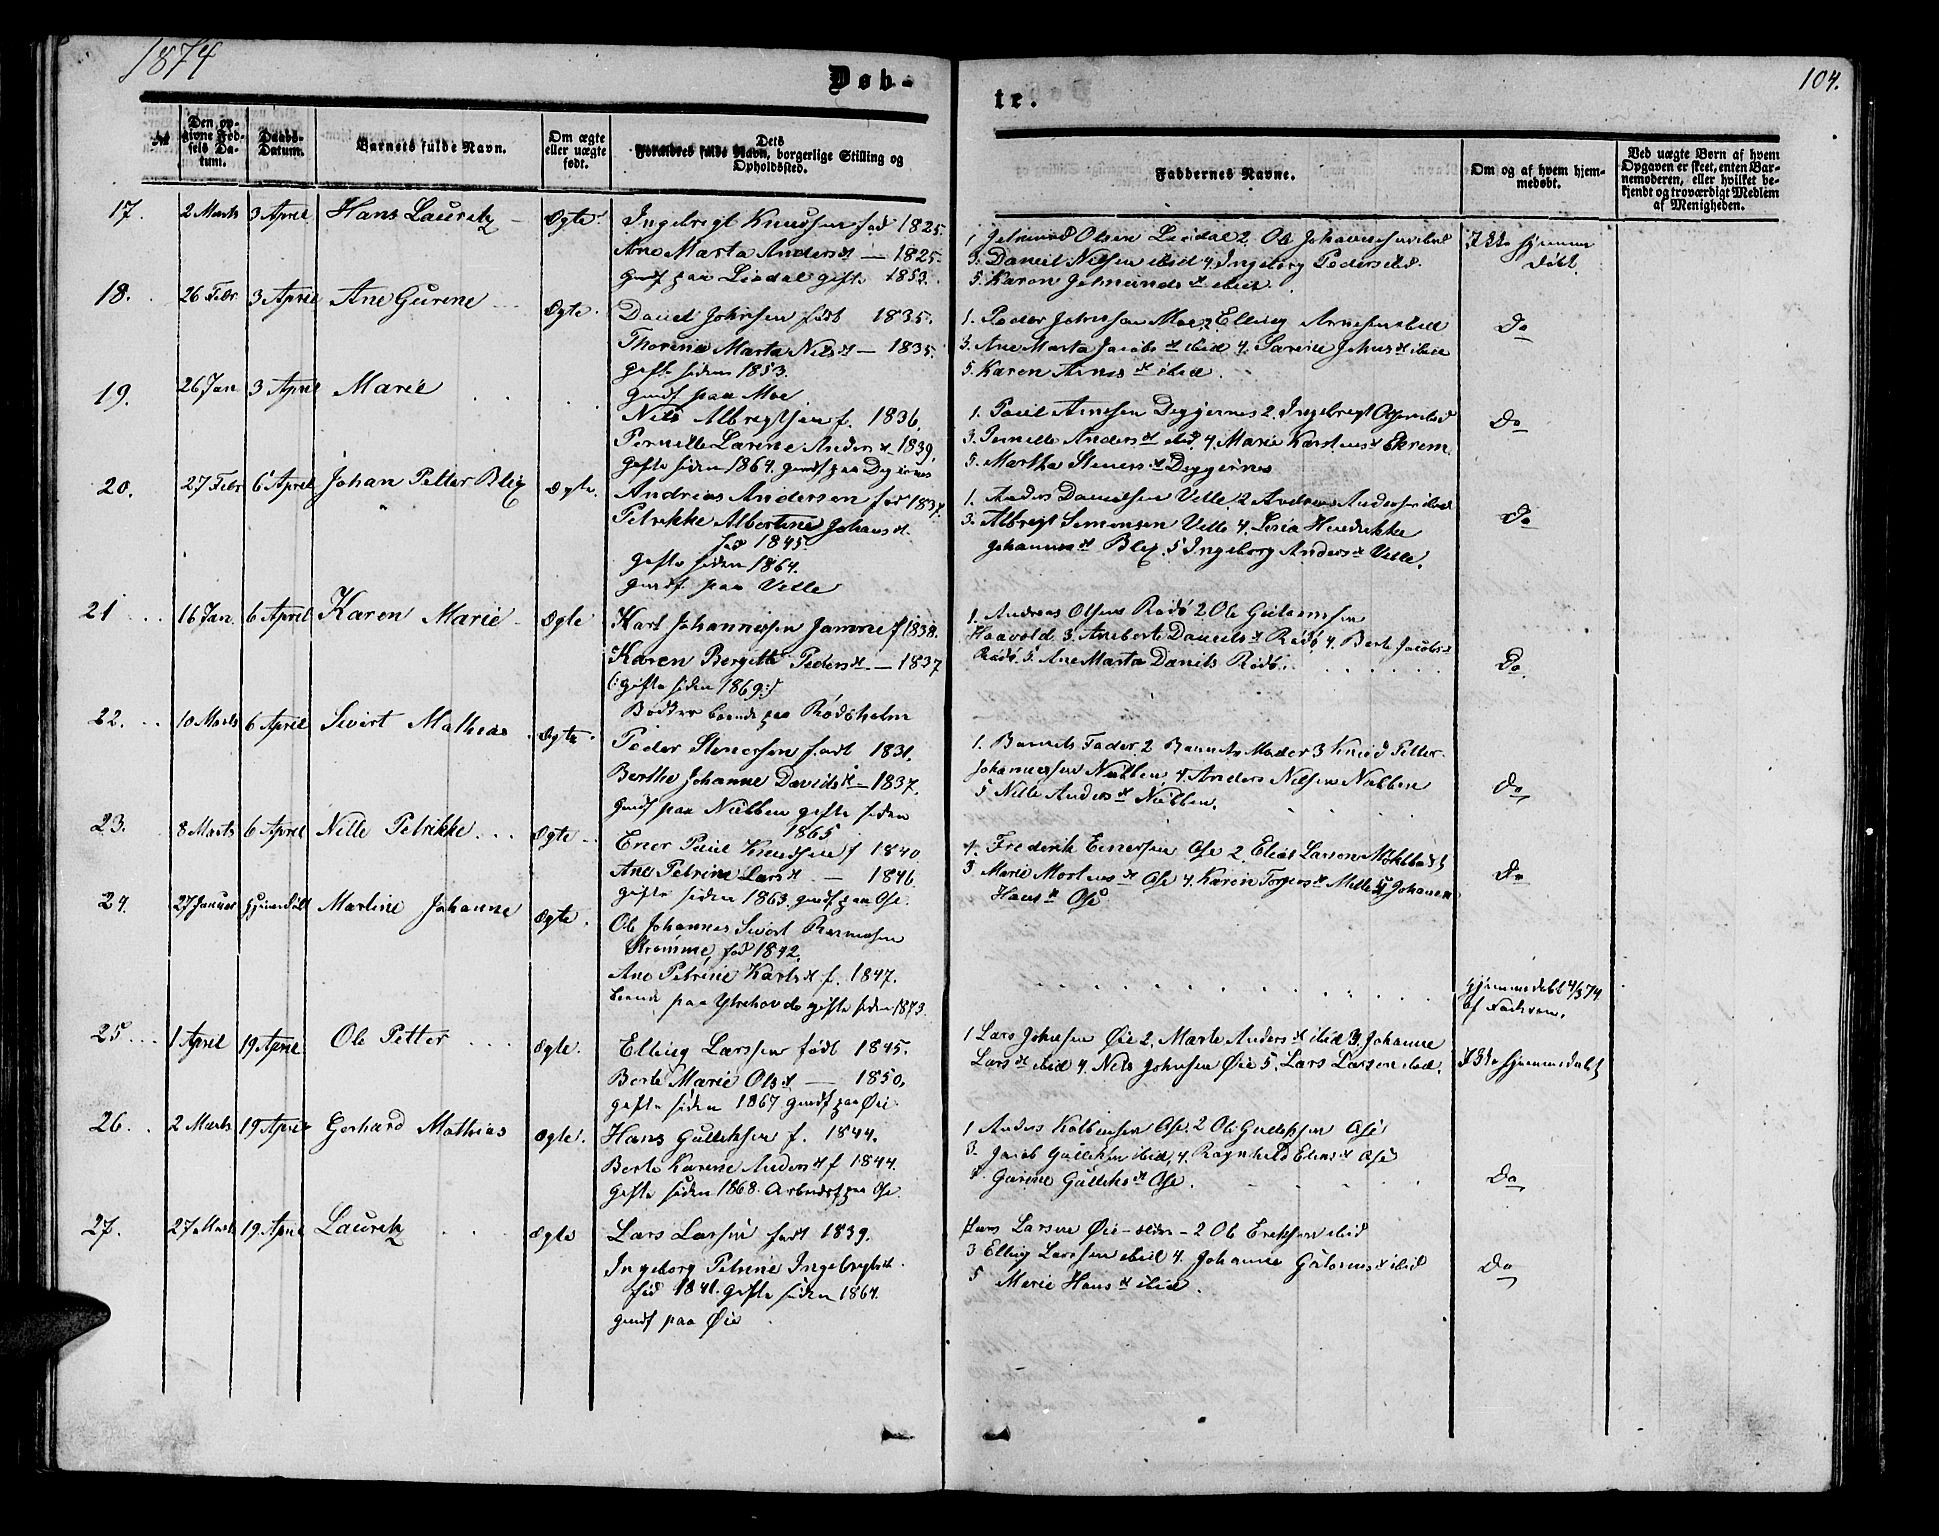 1874
Døb-
te.
104.
№
Den opgivne Fødsels Datum.
Daabs-Datum.
Barnets fulde Navn.
Om ægte eller uægte født.
Dets Forældres fulde Navn, borgerlige Stilling og Opholdssted.
Faddernes Navne.
Om og af hvem hjemmedøbt.
Ved uægte Børn af hvem Opgaven er skeet, enten Barnemoderen, eller hvilket bekjendt og troværdigt Medlem af Menigheden.
17. 2 Marts 3 April Hans Lauritz Ægte
Ingebrigt Knudsen fød 1825.
Ane Marta Andersd. — 1825.
gmdf paa Liadal gifte 1853.
1 Olsen Liadal 2. Ole Johannesen ibid
3. Daniel Nilsen ibid 4. Ingeborg Pedersd.
5. Karen ibid.
Ikke hjemmedøbt
18. 26 Febr 3 April Ane Gurine Ægte.
Daniel Johnsen født 1835.
Thorine Marta Nilsd — 1835.
gifte siden 1853.
gmdf paa Moe
1. Peder Johnsen Moe 2. Elling Arnesen ibid
3. Ane Marta Jacobsd ibid 4. Johnsd ibid
5. Karen Arnesd ibid.
Do
19. 26 Jan 3 April Marie
Nils Albregtsen f. 1836.
Pernille Larine Andersd 1839.
gifte siden 1864. gmdf paa Deggernes
1. Paul Arnesen Deggernes 2. Ingebrigt
3. Pernille Andersd ibid, 4. Marie Karstensd Ekrem
5. Martha Stenersd Deggernes
Do
20. 27 Febr 6 April Johan Petter Blix Ægte.
Andreas Andersen fød 1837.
Petrikke Albertine Johansd.
fød 1845.
gifte siden 1864.
gmdf paa Velle
1. Anders Danielsen Velle. 2 Andreas Andersen ibid
3. Albregt Simonsen Velle 4. Hendrikke
Johannesd Blix. 5 Ingeborg Andersd Velle.
Do
21 16 Jan. 6 April Karen Marie Ægte
Karl Johannessen f 1838.
Karen Bergitte Pedersd. — 1837
(: gifte siden 1869 :)
Bødker boende paa Rødsholm
1. Andreas Olsen Rødø 2 Ole
Haavold 3. Aneberte Danielsd Rødø 4. Berte Jacobsd
Rødø. 5. Ane Marta Daniels Rødø.
Do.
22. 10 Marts 6 April Sivert Mathias Ægte
Peder Stenersen født 1831.
Berthe Johanne Davidsd — 1837.
gmdf paa Nubben gifte siden
1865
1. Barnets Fader 2 Barnets Moder 3 Knud Petter
Johannessen Nubben, 4. Anders Nilsen Nubben
5 Nille Andersd Nubben.
Do
23. 8 Marts 6 April Nille Petrikke Ægte
Ener Paul Knudsen f 1840
Ane Petrine Larsd. — 1846.
gifte siden 1863. gmdf paa Ose.
1. Frederik Enersen Ose 2. Elias Larsen
3 Marie Mortensd Ose 4. Karen Torgersd Melle 5 Johanne
Hansd Ose
Do
24. 27 Januar hjemmedøbt Martine Johanne Ægte.
Ole Johannes Sivert Rasmusen
Strømme, fød 1842.
Ane Petrine Karlsd f. 1847.
boende paa Ytrehovde gifte siden 1873.
hjemmedøbt 4/3 74
af Faderen.
25. 1 April 19 April Ole Petter Ægte.
Elling Larssen født 1845.
Berte Marie Olsd — 1850.
gifte siden 1867 gmdf paa Øie
1 Lars Johnsen Øie 2. Marte Andersd ibid 3. Johanne
Larsd ibid 4. Nils Johnsen Øie 5. Lars Larsen ibid.
Ikke hjemmedøbt
26. 2 Marts 19 April Gerhard Mathias Ægte.
Hans Gulliksen f. 1844.
Berte Karine Andersd f 1844.
gifte siden 1868. Arbmdf paa Ose
1 Anders Kolbensen Ose. 2 Ole Gulliksen Ose
3. Jacob Gulliksen ibid, 4. Ragnhild Eliasd Ose
5. Gurine Gulliksd Ose.
Do
27. 27 Marts 19 April Lauritz Ægte
Lars Larsen født 1839.
Ingeborg Petrine Ingebrigtsd.
fød 1841. gifte siden 1864.
gmdf paa Øie
Lars Larsen Øie — ældre — 2 Ole Eriksen ibid
3 Elling Larssen ibid 4. Johanne ibid
5 Marie Hansd ibid.
Do